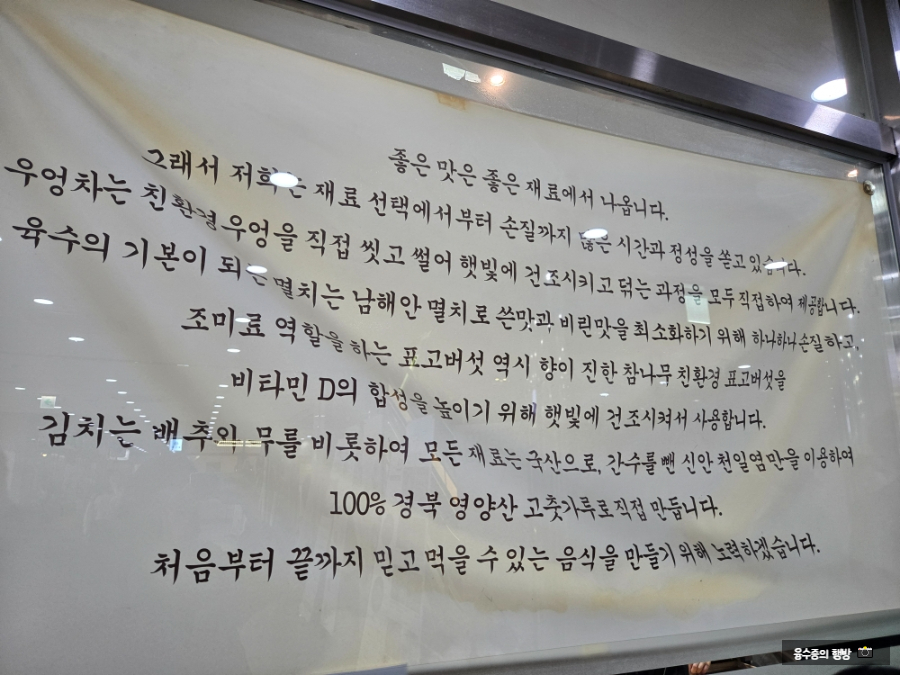 좋은 맛은 좋은 재료에서 나옵니다.
그래서 저희는 재료 선택에서부터 손질까지 많은 시간과 정성을 쏟고 있습니다.
우엉차는 친환경 우엉을 직접 씻고 썰어 햇빛에 건조시키고 덖는 과정을 모두 직접하여 제공합니다.
육수의 기본이 되는 멸치는 남해안 멸치로 쓴맛과 비린맛을 최소화하기 위해 하나하나 손질하고,
조미료 역할을 하는 표고버섯 역시 향이 진한 참나무 친환경 표고버섯을
비타민 D의 합성을 높이기 위해 햇빛에 건조시켜서 사용합니다.
김치는 배추와 무를 비롯하여 모든 재료는 국산으로, 간수를 뺀 신안 천일염만을 이용하여
100% 경북 영양산 고춧가루로 직접 만듭니다.
처음부터 끝까지 믿고 먹을 수 있는 음식을 만들기 위해 노력하겠습니다.